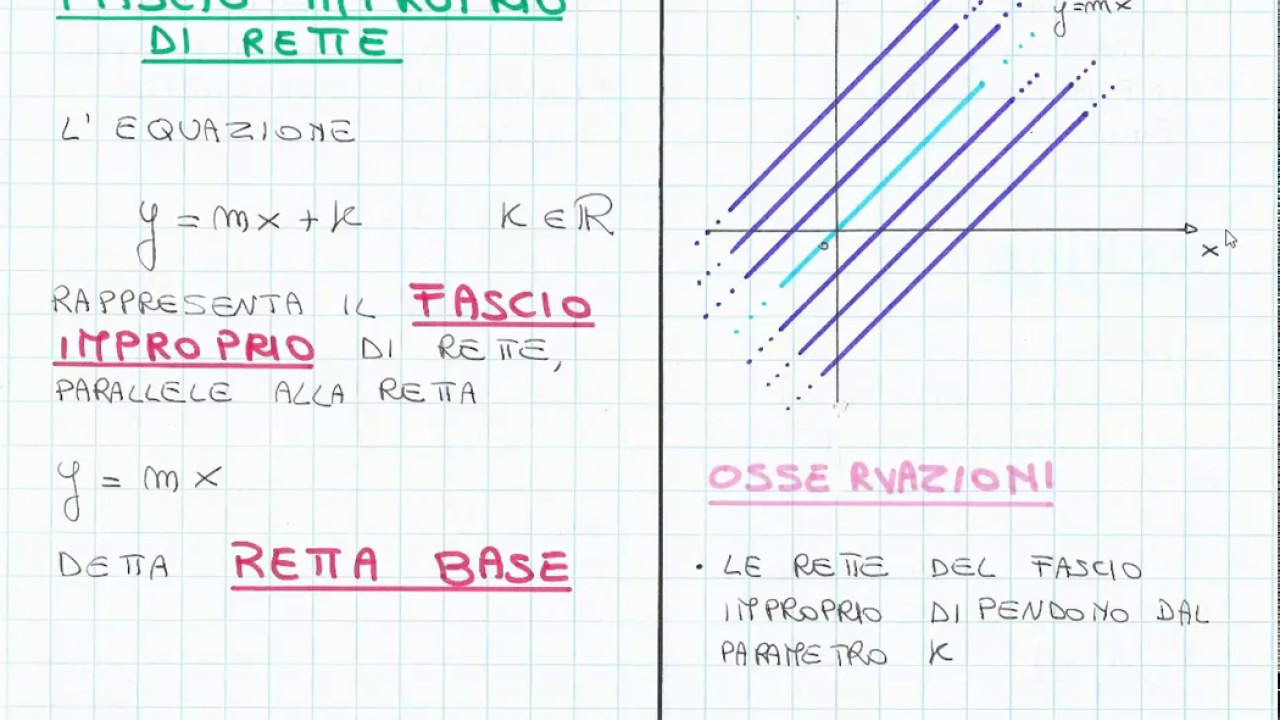 FASCIO IMPROPRIO
DI RETTE
L' EQUAZIONE
y = mx + k K ∈ ℝ
RAPPRESENTA IL FASCIO
IMPROPRIO DI RETTE,
PARALLELE ALLA RETTA
y = mx
DETTA RETTA BASE
y=mx
o
x
OSSERVAZIONI
• LE RETTE DEL FASCIO
IMPROPRIO DIPENDONO DAL
PARAMETRO K